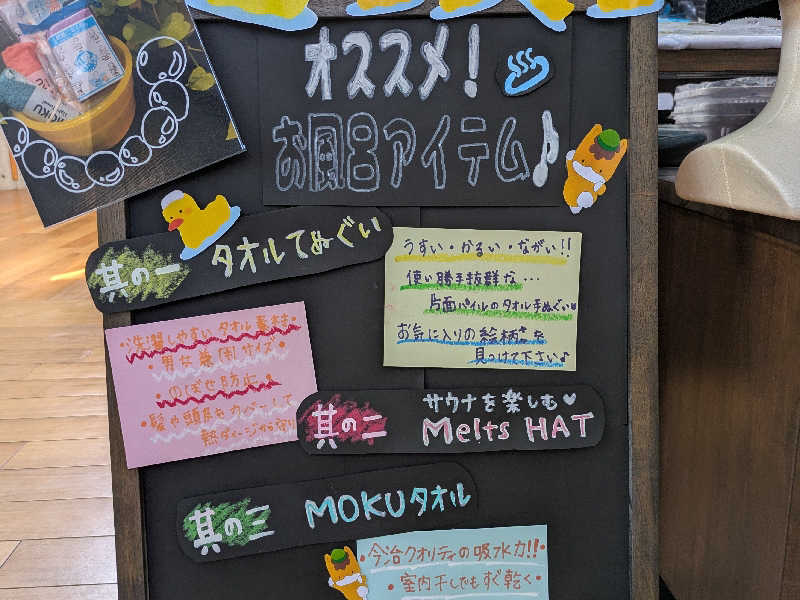 オススメ!
お風呂アイテム♪
其の一 タオルてぬぐい
うすい・かるい・ながい!!
使い勝手抜群な…
片面パイルのタオル手ぬぐい
お気に入りの絵柄を
見つけて下さい♪
・洗濯しやすいタオル素材・
・男女兼用サイズ・
・のぼせ防止・
・髪や頭皮をカバーして
熱ダメージから守り
其の二 サウナを楽しむ♥
Melts HAT
其の三 MOKUタオル
・今治クオリティの吸水力!!・
・室内干しでもすぐ乾く・
MOKU